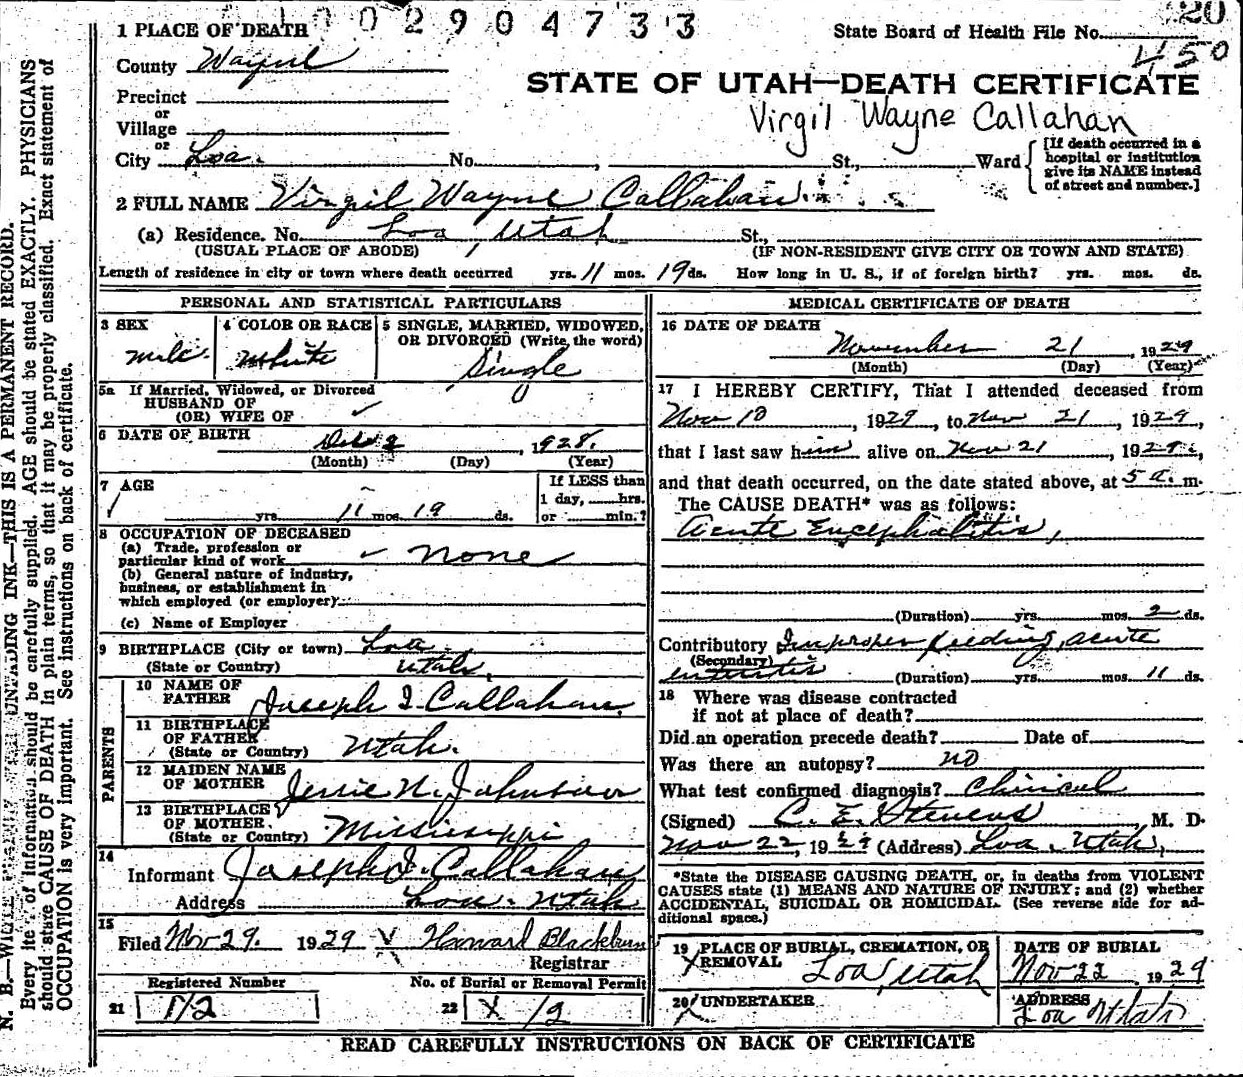 1002904733
20
1 PLACE OF DEATH
State Board of Health File No.
450
County Wayne
STATE OF UTAH—DEATH CERTIFICATE
Precinct
or
Village
Virgil Wayne Callahan
or
City Loa. No. , St., Ward
[If death occurred in a hospital or institution give its NAME instead of street and number.]
2 FULL NAME Virgil Wayne Callahan
(a) Residence. No. Loa, Utah St.,
(USUAL PLACE OF ABODE) (IF NON-RESIDENT GIVE CITY OR TOWN AND STATE)
Length of residence in city or town where death occurred yrs. 11 mos. 19 ds. How long in U. S., if of foreign birth? yrs. mos. ds.
PERSONAL AND STATISTICAL PARTICULARS
3 SEX
male
4 COLOR OR RACE
White
5 SINGLE, MARRIED, WIDOWED, OR DIVORCED (Write the word)
Single
5a If Married, Widowed, or Divorced
HUSBAND OF
(OR) WIFE OF ✓
6 DATE OF BIRTH Dec 2, 1928.
(Month) (Day) (Year)
7 AGE
yrs. 11 mos. 19 ds.
If LESS than
1 day, hrs.
or min.?
8 OCCUPATION OF DECEASED
(a) Trade, profession or
particular kind of work ✓ none
(b) General nature of industry,
business, or establishment in
which employed (or employer)
(c) Name of Employer
9 BIRTHPLACE (City or town) Loa
(State or Country) Utah,
PARENTS
10 NAME OF FATHER Joseph I. Callahan
11 BIRTHPLACE OF FATHER
(State or Country) Utah.
12 MAIDEN NAME OF MOTHER Jessie N. Johnson
13 BIRTHPLACE OF MOTHER
(State or Country) Mississippi
14
Informant Joseph I. Callahan
Address Loa. Utah
15
Filed Nov 29. 1929 Howard Blackburn
Registrar
Registered Number
21 12
No. of Burial or Removal Permit
22 X 12
MEDICAL CERTIFICATE OF DEATH
16 DATE OF DEATH
November 21, 1929
(Month) (Day) (Year)
17 I HEREBY CERTIFY, That I attended deceased from
Nov 10, 1929, to Nov 21, 1929,
that I last saw him alive on Nov 21, 1929,
and that death occurred, on the date stated above, at 5 a. m.
The CAUSE DEATH* was as follows:
Acute Encephalitis,
(Duration) yrs. mos. 2 ds.
Contributory Improper feeding, acute
(Secondary)
Enteritis (Duration) yrs. mos. 11 ds.
18 Where was disease contracted
if not at place of death?
Did an operation precede death? Date of
Was there an autopsy? no
What test confirmed diagnosis? Clinical
(Signed) C. E. Stevens, M. D.
Nov 22, 1929 (Address) Loa, Utah,
*State the DISEASE CAUSING DEATH, or, in deaths from VIOLENT
CAUSES state (1) MEANS AND NATURE OF INJURY; and (2) whether
ACCIDENTAL, SUICIDAL OR HOMICIDAL. (See reverse side for ad-
ditional space.)
19 PLACE OF BURIAL, CREMATION, OR REMOVAL
Loa, Utah
DATE OF BURIAL
Nov 22, 1929
20 UNDERTAKER
ADDRESS
Loa Utah
READ CAREFULLY INSTRUCTIONS ON BACK OF CERTIFICATE
N. B.—WRITE PLAINLY WITH UNFADING INK—THIS IS A PERMANENT RECORD.
Every item of information should be carefully supplied. AGE should be stated EXACTLY. PHYSICIANS
should state CAUSE OF DEATH in plain terms, so that it may be properly classified. Exact statement of
OCCUPATION is very important. See instructions on back of certificate.